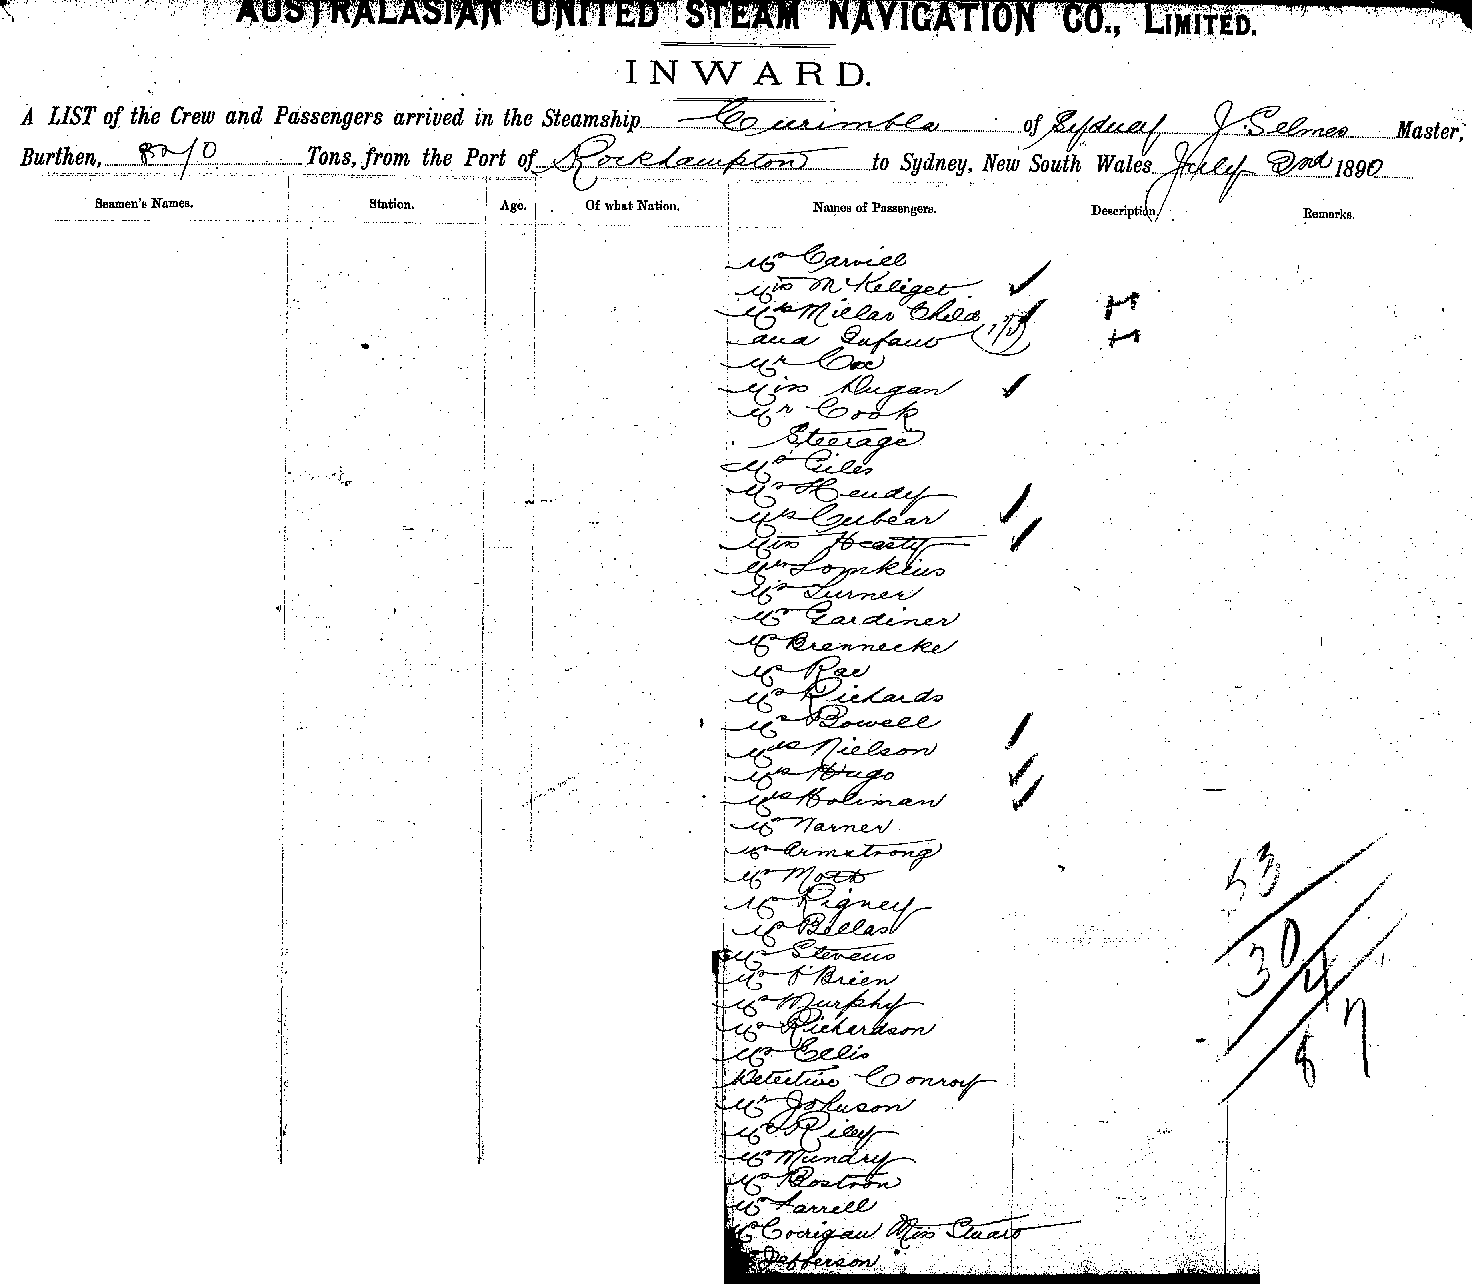 AUSTRALASIAN UNITED STEAM NAVIGATION CO., LIMITED.
INWARD.
A LIST of the Crew and Passengers arrived in the Steamship Curimbla of Sydney J. Selmes Master,
Burthen, Tons, from the Port of Rockhampton to Sydney, New South Wales July 2nd 1890
Seamen's Names. Station. Age. Of what Nation. Names of Passengers. Description Remarks.
Mr Carvill
Miss McKeliget
Mrs Millar Child 1
and Infant 1
Mr Cox
Miss Dugan
Mr Cook
Steerage
Mr Giles
Mr Hendy
Mrs Cubear
Miss Heasty
Mr Tomkins
Mr Turner
Mr Gardiner
Mr Brennecke
Mr Rae
Mr Richards
Mr Bowell
Mrs Nielson
Mrs Hugo
Mrs Holiman
Mr Warner
Mr Armstrong
Mr Mott
Mr Rigney
Mr Bellas
Mr Stevens
Mr O'Brien
Mr Murphy
Mr Richardson
Mr Ellis
Detective Conroy
Mr Johnson
Mr Riley
Mr Mundry
Mr Bostron
Mr Farrell
Mr Corrigan Miss Stuart
Jefferson
53
30
4
87